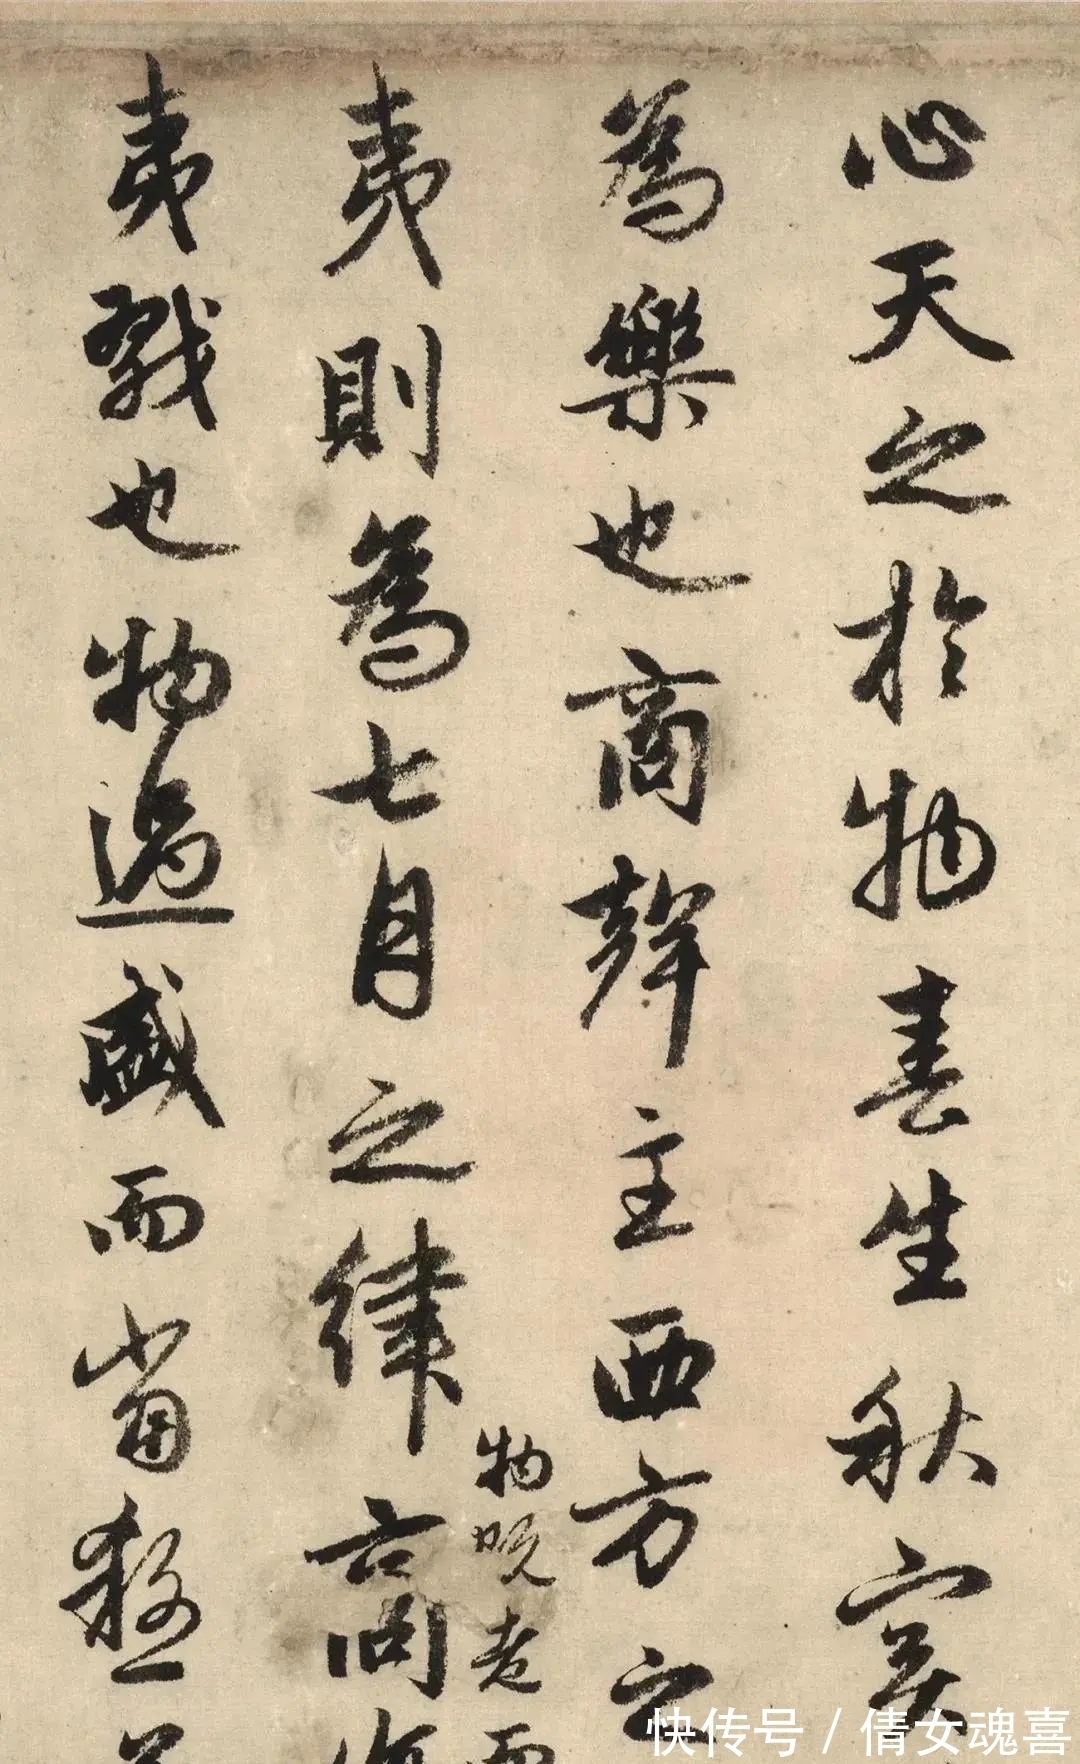 心天之於物春生秋實
為樂也商聲主西方之
物既老而
夷則為七月之律商
夷戮也物過盛而當殺
快传号 / 倩女魂喜